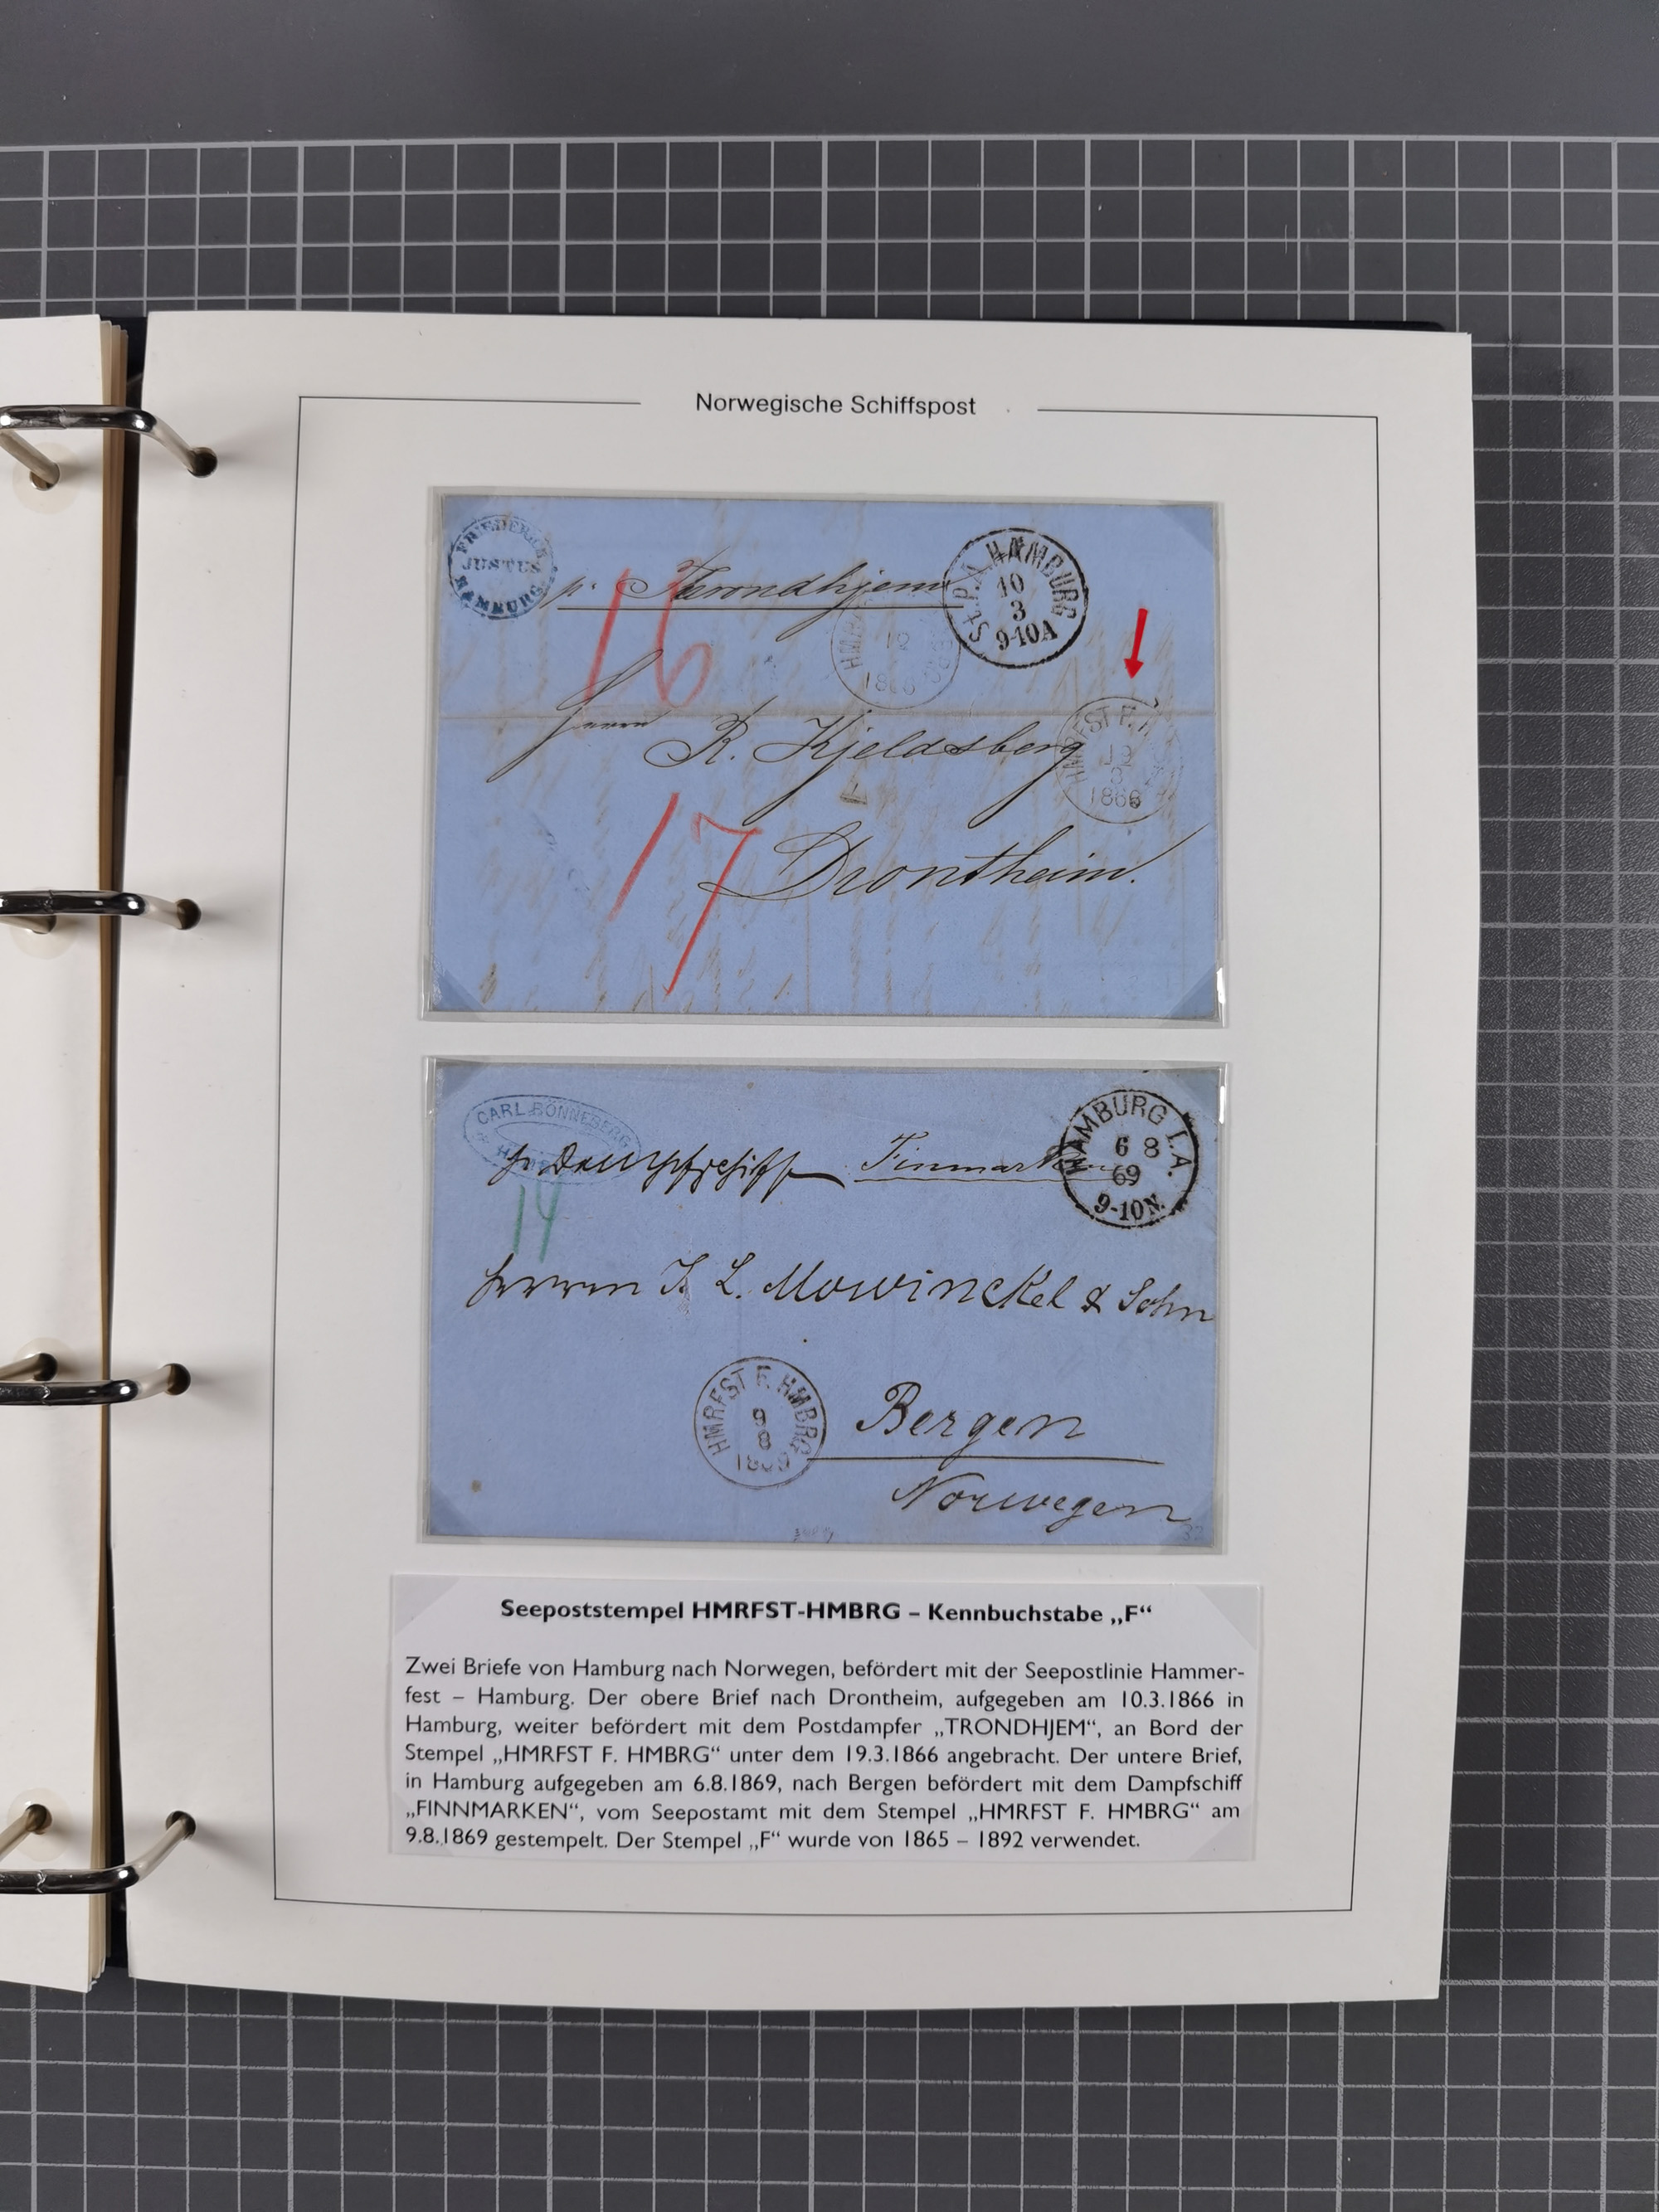 Norwegische Schiffspost
FRIEDERICH
JUSTUS
HAMBURG
p. Trondhjem
St.P.A. HAMBURG
10
3
9-10A
16
12
HMRFST F.
1866
Herrn R. Kjeldsberg
17
Drontheim.
CARL BÖNNEBERG
pr Dampfschiff Finmarken
HAMBURG I.A.
6 8
69
9-10N.
14
Herrn J. L. Mowinckel & Sohn
HMRFST F. HMBRG
9
8
1869
Bergen
Norwegen
Seepoststempel HMRFST-HMBRG – Kennbuchstabe „F“
Zwei Briefe von Hamburg nach Norwegen, befördert mit der Seepostlinie Hammer-
fest – Hamburg. Der obere Brief nach Drontheim, aufgegeben am 10.3.1866 in
Hamburg, weiter befördert mit dem Postdampfer „TRONDHJEM“, an Bord der
Stempel „HMRFST F. HMBRG“ unter dem 19.3.1866 angebracht. Der untere Brief,
in Hamburg aufgegeben am 6.8.1869, nach Bergen befördert mit dem Dampfschiff
„FINNMARKEN“, vom Seepostamt mit dem Stempel „HMRFST F. HMBRG“ am
9.8.1869 gestempelt. Der Stempel „F“ wurde von 1865 – 1892 verwendet.